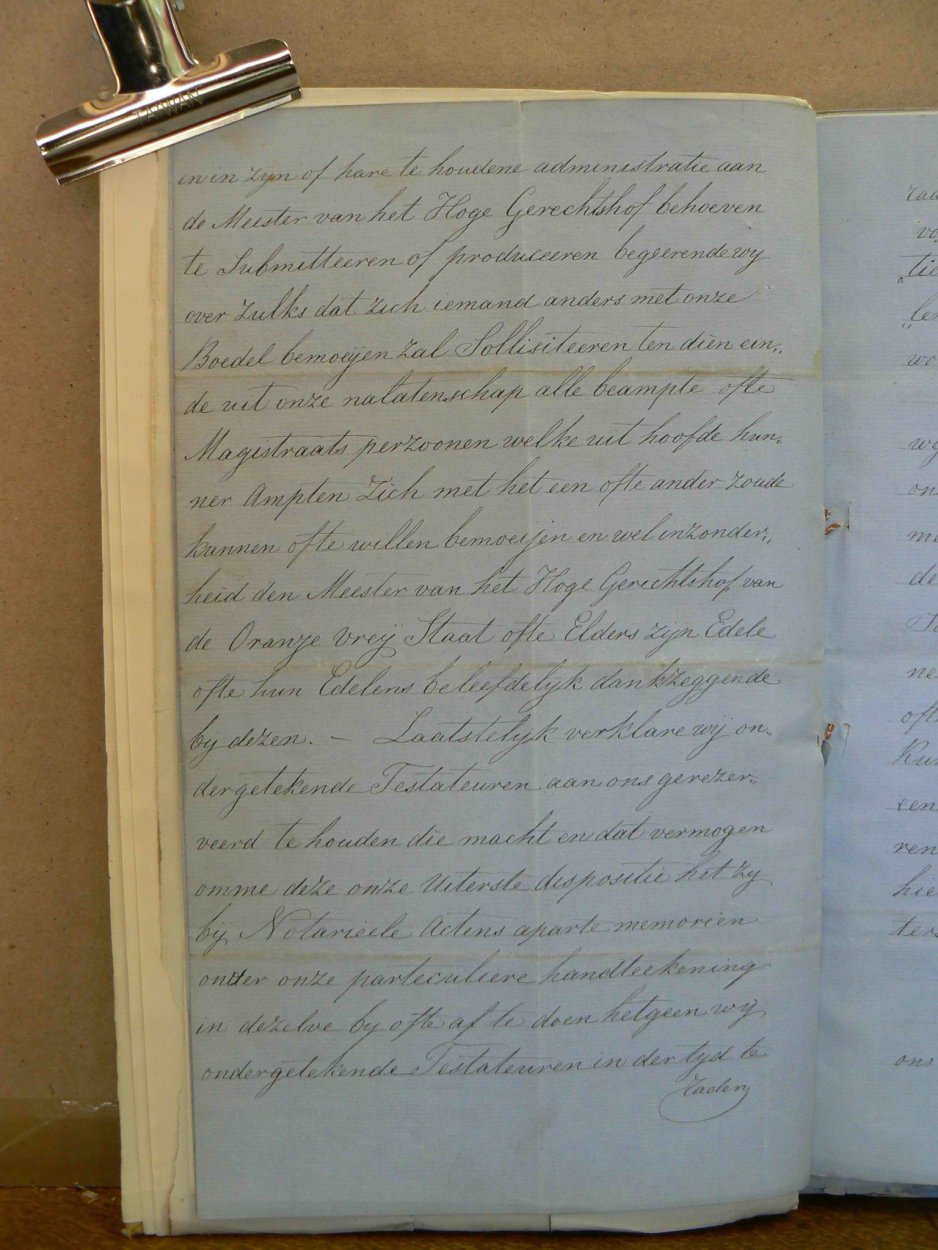 TAIWAN
en in zijn of hare te houdene administratie aan
de Meester van het Hoge Gerechtshof behoeven
te Submitteeren of produceeren begeerende wy
over Zulks dat zich iemand anders met onze
Boedel bemoeijen zal Sollisiteeren ten diën ein„
de uit onze nalatenschap alle beampte ofte
Magistraats perzoonen welke uit hoofde hun„
ner Ampten Zich met het een ofte ander zoude
kunnen ofte willen bemoeijen en wel inzonder„
heid den Meester van het Hoge Gerechtshof van
de Oranje Vreij Staat ofte Elders zijn Edele
ofte hun Edelens beleefdelijk dankzeggende
by dezen. – Laatstelyk verklare wij on„
dergetekende Testateuren aan ons gerezer„
veerd te houden die macht en dat vermogen
omme deze onze Uiterste dispositie het zy
bij Notarieele Actens aparte memorien
onder onze particuliere handteekening
in dezelve by ofte af te doen hetgeen wij
ondergetekende Testateuren in der tyd te
Raden
wy
on
me
de
ne
ofte
een
ren
hie
ters
ons